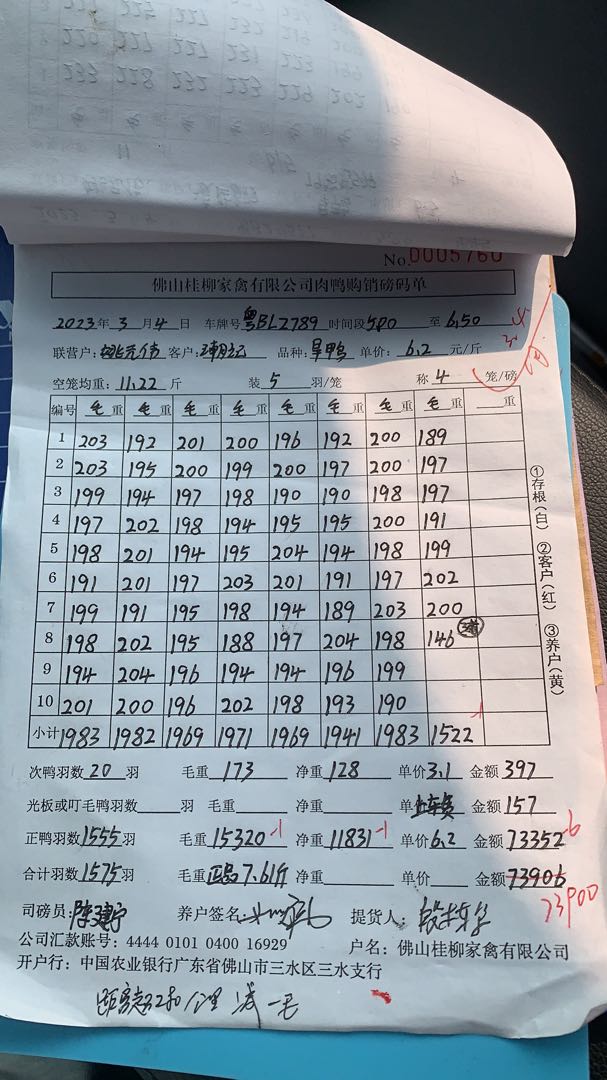 No.0005760
佛山桂柳家禽有限公司肉鸭购销磅码单
2023年 3 月 4 日 车牌号 粤BL2789 时间段 500 至 6,50
联营户: 客户: 品种: 旱鸭 单价: 6.2 元/斤
空笼均重: 11.22 斤 装 5 羽/笼 称 4 笼/磅
编号 毛重 毛重 毛重 毛重 毛重 毛重 毛重 毛重 重
1 203 192 201 200 196 192 200 189
2 203 195 200 199 200 197 200 197
3 199 194 197 198 190 190 198 197
4 197 202 198 194 195 195 200 191
5 198 201 194 195 204 194 198 199
6 191 201 197 203 201 191 197 202
7 199 191 195 198 194 189 203 200
8 198 202 195 188 197 204 198 146
9 194 204 196 194 194 196 199
10 201 200 196 202 198 193 190
小计 1983 1982 1969 1971 1969 1941 1983 1522 -1
①存根(白) ②客户(红) ③养户(黄)
次鸭羽数 20 羽 毛重 173 净重 128 单价 3.1 金额 397
光板或叮毛鸭羽数 羽 毛重 净重 单 金额 157
正鸭羽数 1555 羽 毛重 15320 -1 净重 11831 -1 单价 6.2 金额 73352 -6
合计羽数 1575 羽 毛重 正品7.61斤 净重 单价 金额 73906
73900
司磅员: 养户签名 提货人:
公司汇款账号: 4444 0101 0400 16929 户名: 佛山桂柳家禽有限公司
开户行: 中国农业银行广东省佛山市三水区三水支行